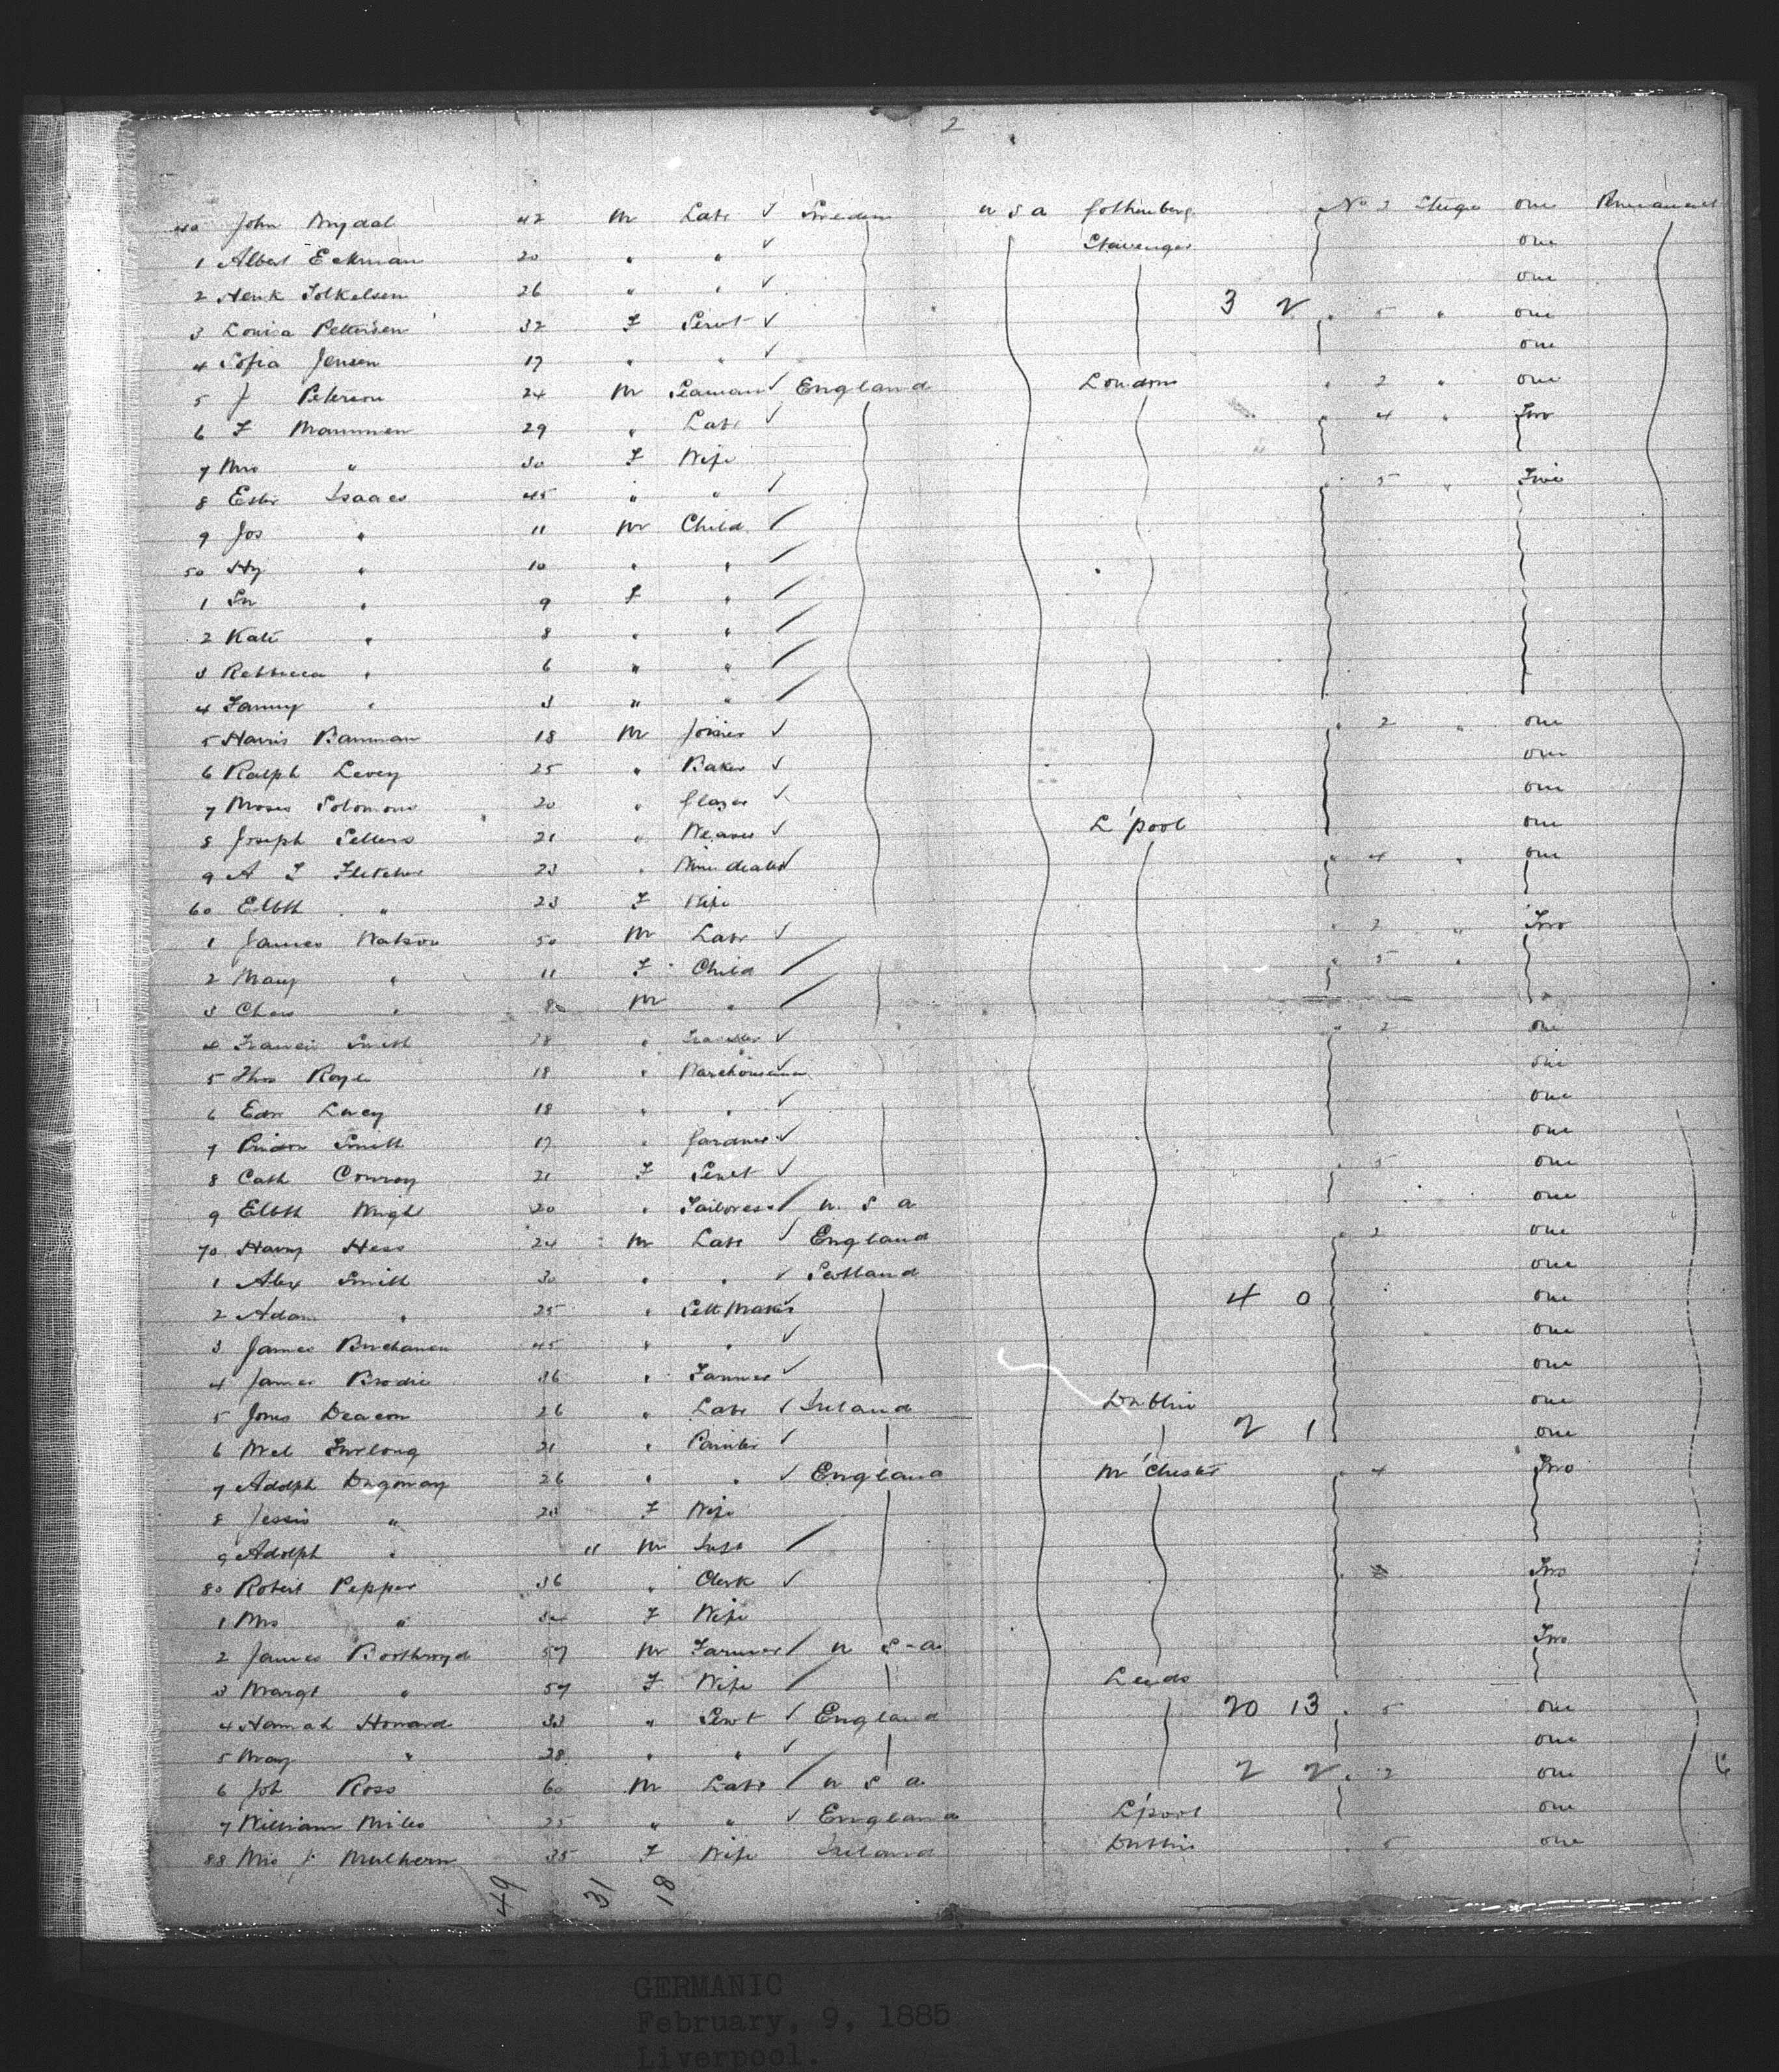 2
John 42 M Labr Sweden U S A Gothenberg No 2 Stege one Permanent
1 Albert Eckman 20 " " Stavenger one
2 26 " " one
3 Louisa Pettersen 32 F Servt 3 2 " 5 " one
4 Sofia Jensen 17 " " one
5 J Peterson 24 M Seaman England London " 2 " one
6 F 29 " Labr " 4 " Two
7 Mrs " 30 F Wife
8 Isaacs 45 " " " 5 " Five
9 Jos " 11 M Child
50 Hy " 10 " "
1 " 9 F "
2 Kate " 8 " "
3 Rebbecca " 6 " "
4 Fanny " 3 " "
5 Harris Banman 18 M Joiner " 2 " one
6 Ralph Levey 25 " Baker one
7 Moses Solomons 20 " Glazer one
8 Joseph Sellers 21 " Weaver L'pool one
9 A Fletcher 23 " " 4 " one
60 Elbth " 23 F Wife
1 James Watson 50 M Labr " 2 " Two
2 Mary " 11 F Child " 5 "
3 Chas " 8 M "
4 Francis Smith 28 " " 2 one
5 Thos Royle 18 " Warehouseman one
6 Edw Levey 18 " " one
7 Smith 17 " Gardner one
8 Cath Conroy 21 F Servt " 5 one
9 Elbth Wright 20 " Tailoress U S A one
70 Harry Hess 24 M Labr England " 2 one
1 Alex Smith 30 " " Scotland one
2 Adam " 25 " 4 0 one
3 James Buchanan 45 " " one
4 James Brodie 36 " one
5 Deacon 26 " Labr Ireland Dublin one
6 Furlong 21 " Painter 2 1 one
7 Adolph 26 " " England M'Chester " 4 Two
8 Jessie " 23 F Wife
9 Adolph " " M Inft
80 Robert Pepper 36 " Clerk Two
1 Mrs " 34 F Wife
2 James Boothroyd 57 M Farmer U S A Two
3 Margt " 57 F Wife Leeds
4 Hannah Howard 33 " Servt England 20 13 " 5 one
5 Mary " 28 " " one
6 Joh Ross 60 M Labr U S A 2 2 " 2 one
7 William Miles 25 " " England L'pool one
88 Mrs Mulhern 35 F Wife Ireland Dublin " 5 one
49 31 18
GERMANIC
February, 9, 1885
Liverpool.